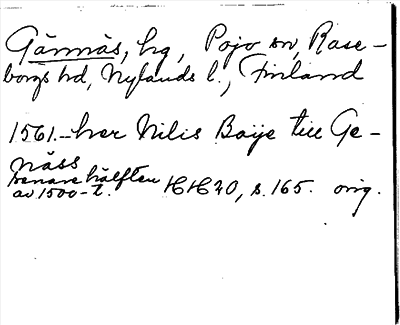 Gännäs, hg, Pojo sn, Rase-
borgs hd, Nylands l., Finland
1561.- her Nilis Boije till Ge-
näss
senare hälften
av 1500-t. HH 20, s. 165. orig.